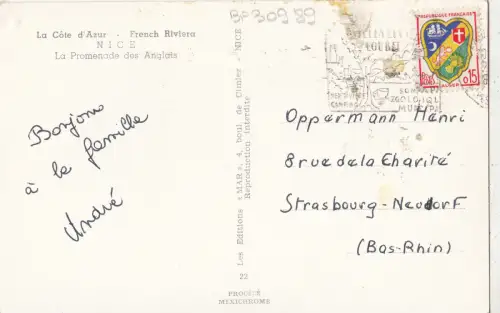 La Côte d'Azur - French Riviera
NICE
La Promenade des Anglais
BP30989
Bonjour
à la famille
André
Les Editions "MAR", 4, boul. de Cimiez - NICE
Reproduction interdite
22
PROCÉDÉ
MEXICHROME
REPUBLIQUE FRANÇAISE
0,15
ALGER
ZOOLOGIQ
Oppermann Henri
8 rue de la Charité
Strasbourg-Neudorf
(Bas-Rhin)